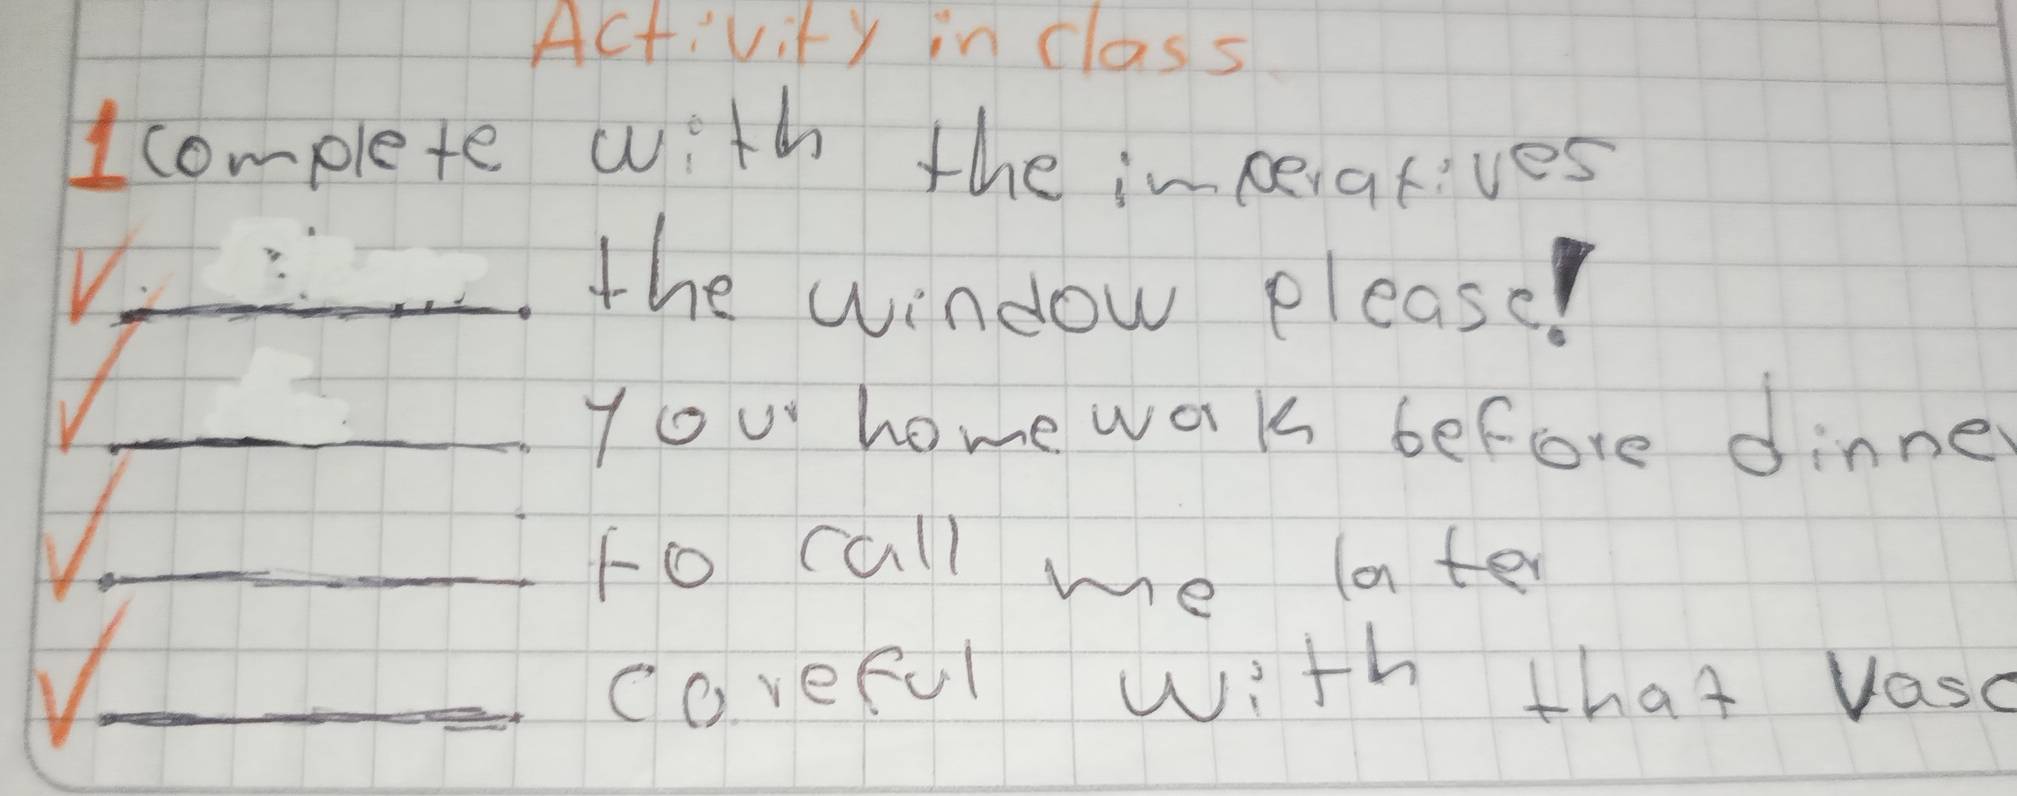 Activity in class
1 complete with the imperatives
the window please!
your homework before dinner
to call me later
careful with that vase